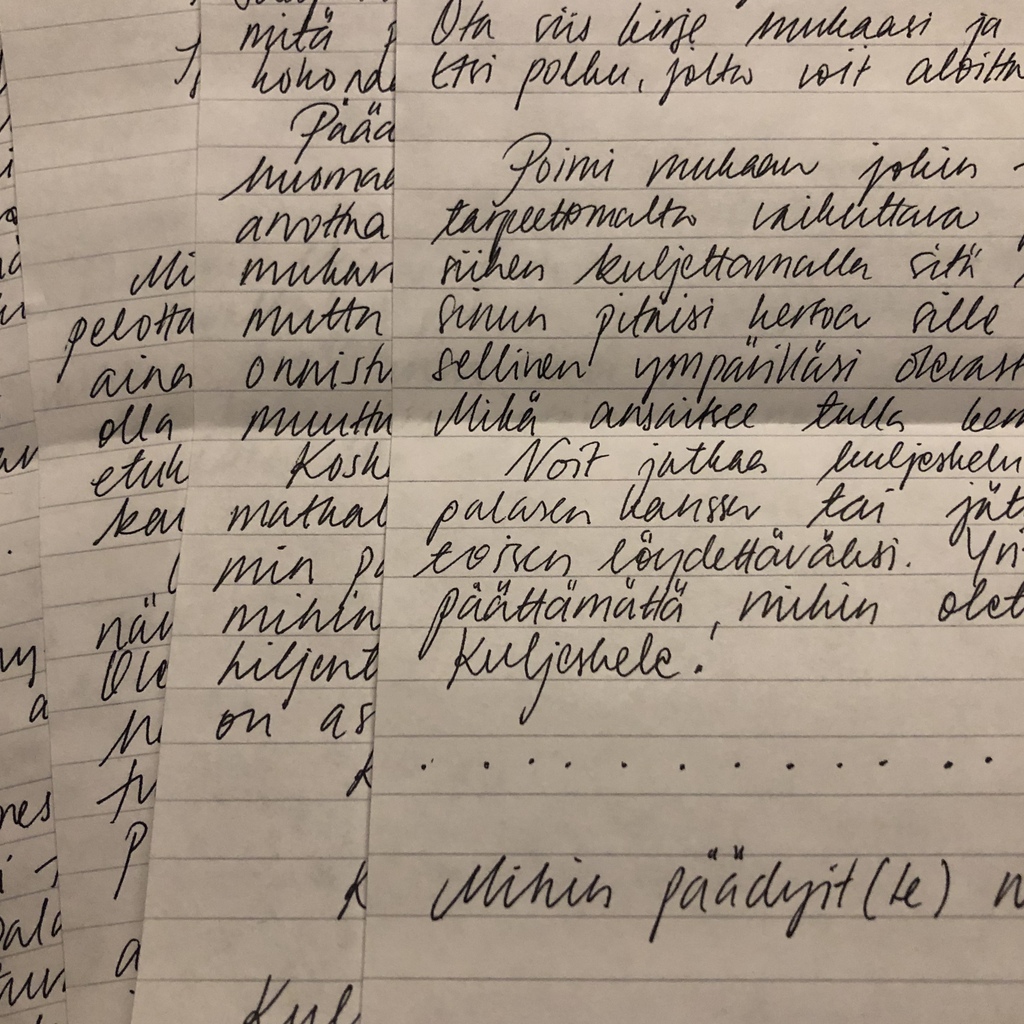 Ota siis kirje mukaasi ja
Etsi polku, jolta voit aloitta
Poimi mukaan jokin
tarpeettomalta vaikuttava
siihen kuljettamalla sitä
sinun pitäisi kertoa sille
sellinen ympärilläsi olevast
Mikä ansaitsee tulla kem
Voit jatkaa kuljeskelu
palasen kanssa tai jät
toisen löydettäväksi. Yri
päättämättä, mihin olet
Kuljeskele.
. . . . . . . . . . . . .
Mihin päädyit(te) n
mitä p
koko na
Pääd
huomaa
arvotta
mukan
mutta
onnist
muutta
Kosk
matkal
min pa
mihin
hiljent
on as
K
K
Kul
Mi
pelotta
aina
olla
etuk
kai
näi
Ole
tu
P
a